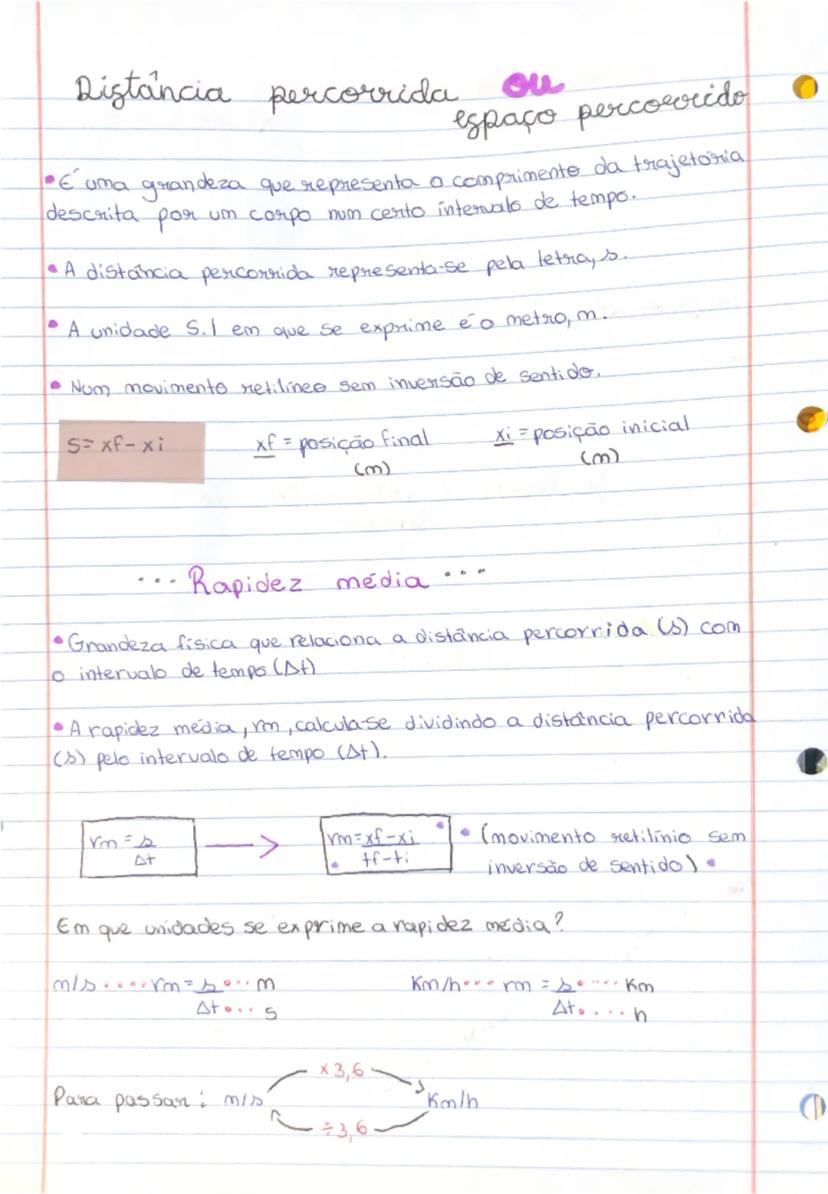 Distância percorrida ou
espaço percorrido
• É uma grandeza que representa o comprimento da trajetória
descrita por um corpo num certo intervalo de tempo.
• A distância percorrida representa-se pela letra, s.
• A unidade S.I em que se exprime é o metro, m.
• Num movimento retilíneo sem inversão de sentido.
S = xf - xi xf = posição final xi = posição inicial
(m) (m)
... Rapidez média ...
• Grandeza física que relaciona a distância percorrida (s) com
o intervalo de tempo (Δt)
• A rapidez média, rm, calcula-se dividindo a distância percorrida
(s) pelo intervalo de tempo (Δt).
rm = s rm = xf - xi • (movimento retilínio sem
Δt tf - ti inversão de sentido) •
Em que unidades se exprime a rapidez média?
m/s .... rm = s ... m Km/h ... rm = s .... Km
Δt ... s Δt .... h
x 3,6
Para passar: m/s Km/h
÷ 3,6